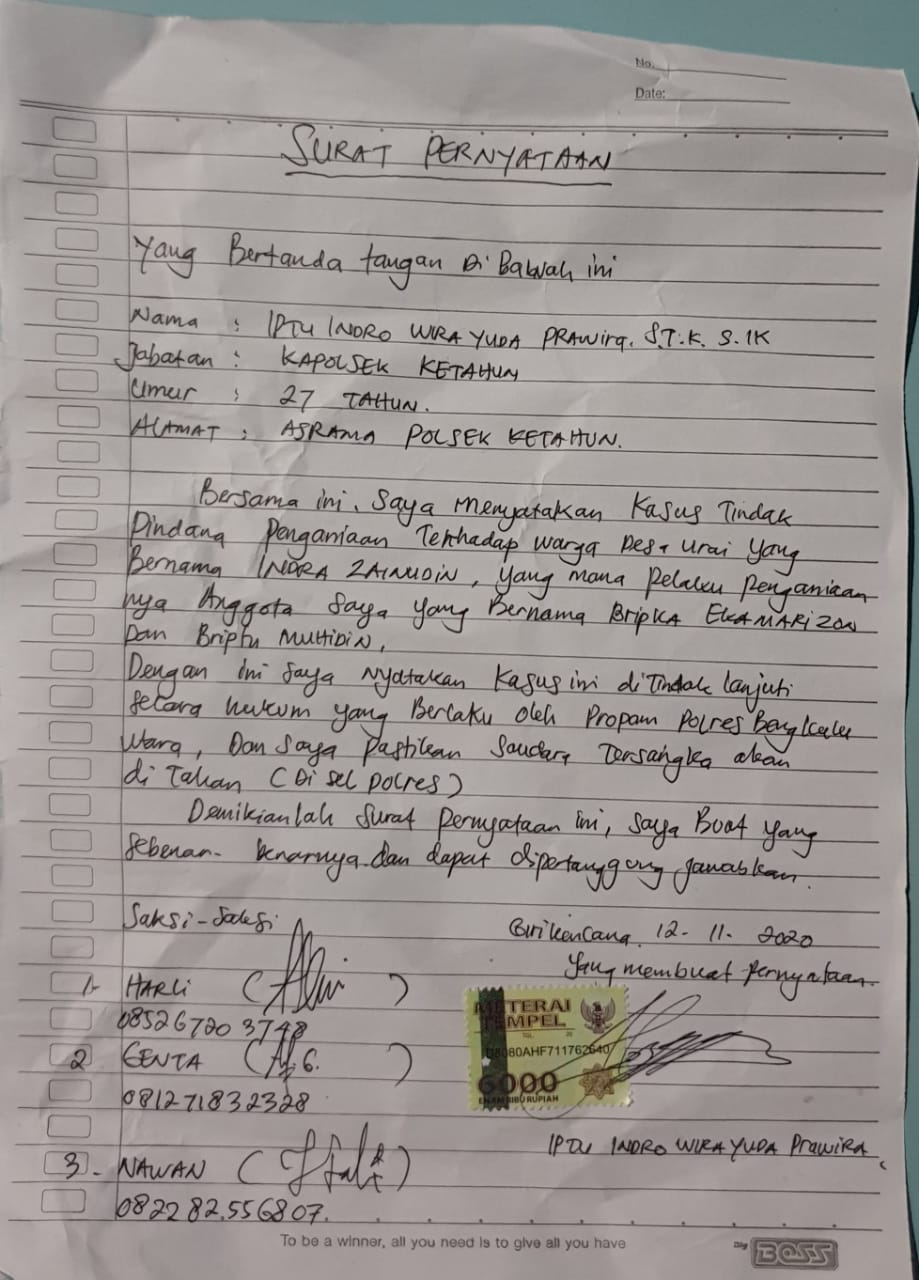 No.
Date:
SURAT PERNYATAAN
Yang Bertanda tangan Di Bawah ini
Nama : IPTU INDRO WIRA YUDA PRAWIRA. S.T.K. S.IK
Jabatan : KAPOLSEK KETAHUN
Umur : 27 TAHUN.
ALAMAT : ASRAMA POLSEK KETAHUN.
Bersama ini. Saya menyatakan Kasus Tindak
Pindana Penganiaan Terhadap warga Desa Urai yang
Bernama INDRA ZAINUDIN, yang mana Pelaku Penganiaan
nya Anggota Saya yang Bernama BripKA EKAMARIZON
Dan Briptu MUHIDIN,
Dengan ini saya Nyatakan Kasus ini di Tindak lanjuti
secara hukum yang Berlaku oleh Propam Polres Bengkulu
Utara, Dan saya Pastikan Saudara Tersangka akan
di Tahan (Di sel Polres)
Demikianlah Surat Pernyataan ini, saya Buat yang
sebenar- benarnya dan dapat dipertanggung jawabkan.
Saksi-Saksi
Girikencana, 12- 11- 2020
Yang membuat Pernyataan
1- HARLI ( )
085267203748
METERAI
TEMPEL
TGL. 20
AHF711762640
6000
ENAM RIBU RUPIAH
2 GENTA ( )
081271832328
IPTU INDRO WIRA YUDA Prawira
3 - NAWAN ( )
082282.556807.
To be a winner, all you need is to give all you have
Big BOSS